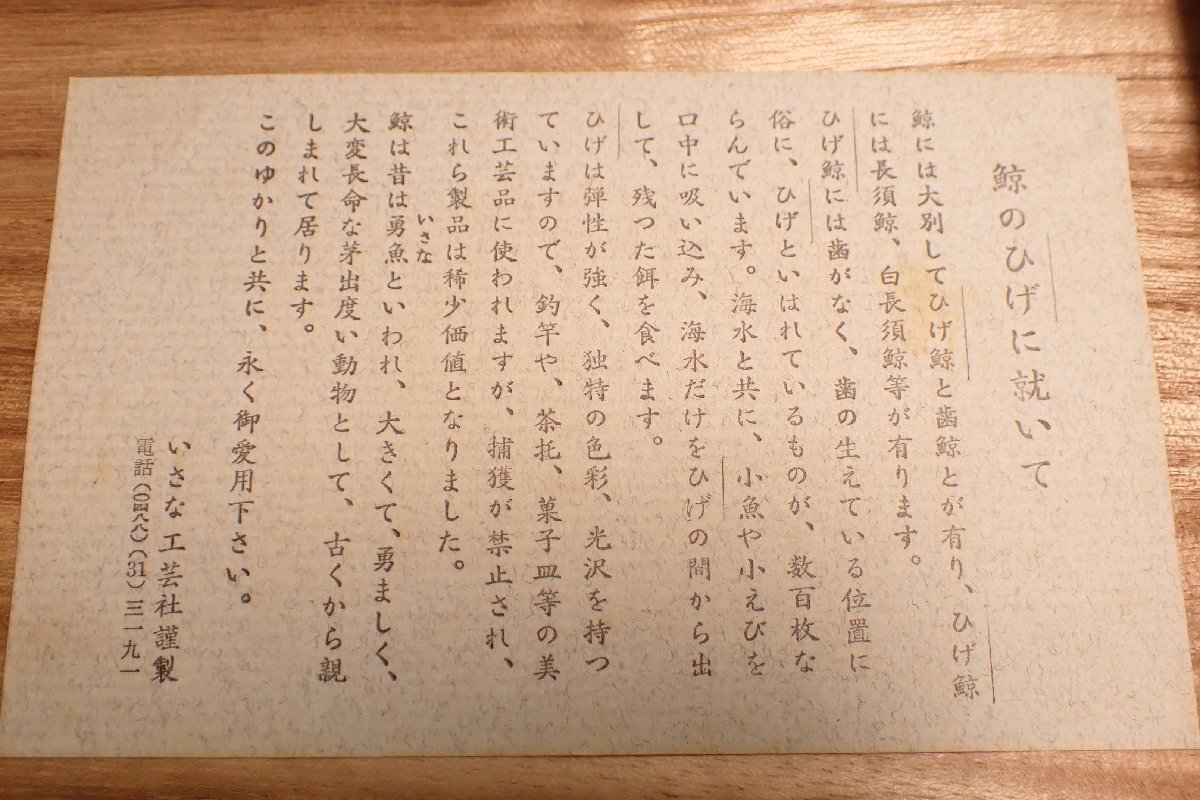 鯨のひげに就いて
鯨には大別してひげ鯨と歯鯨とが有り、ひげ鯨
には長須鯨、白長須鯨等が有ります。
ひげ鯨には歯がなく、歯の生えている位置に
俗に、ひげといはれているものが、数百枚な
らんでいます。海水と共に、小魚や小えびを
口中に吸い込み、海水だけをひげの間から出
して、残つた餌を食べます。
ひげは弾性が強く、独特の色彩、光沢を持つ
ていますので、釣竿や、茶托、菓子皿等の美
術工芸品に使われますが、捕獲が禁止され、
これら製品は稀少価値となりました。
いさな
鯨は昔は勇魚といわれ、大きくて、勇ましく、
大変長命な茅出度い動物として、古くから親
しまれて居ります。
このゆかりと共に、永く御愛用下さい。
いさな工芸社謹製
電話(〇四八八)(31)三一九一